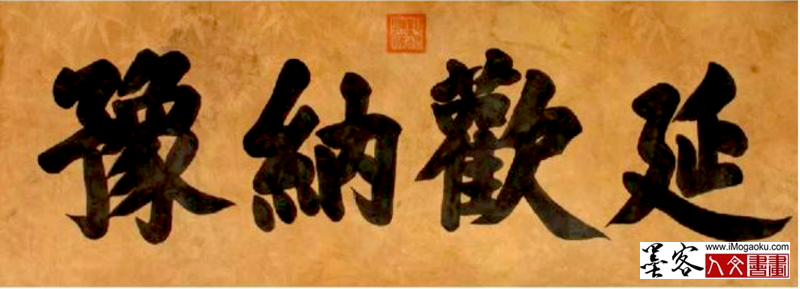 延歡納豫
墨客
www.iMogaoku.com
人文書畫